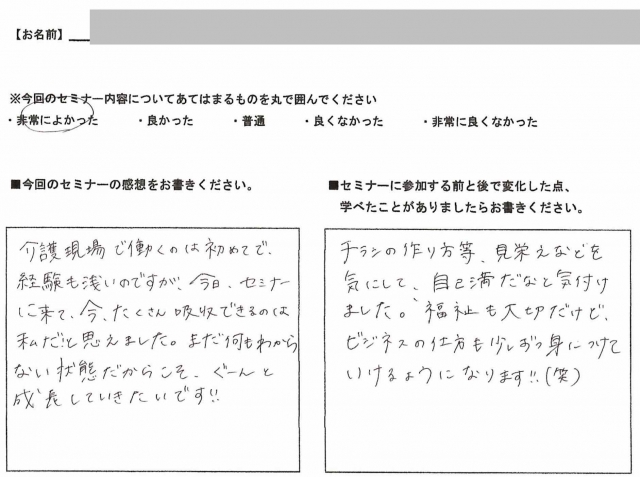 【お名前】
※今回のセミナー内容についてあてはまるものを丸で囲んでください
・非常によかった ・良かった ・普通 ・良くなかった ・非常に良くなかった
■今回のセミナーの感想をお書きください。
介護現場で働くのは初めてで、
経験も浅いのですが、今日、セミナー
に来て、今、たくさん吸収できるのは
私だ!と思えました。まだ何もわから
ない状態だからこそ、ぐーんと
成長していきたいです!!
■セミナーに参加する前と後で変化した点、
学べたことがありましたらお書きください。
チラシの作り方等、見栄えなどを
気にして、自己満だなと気付け
ました。福祉も大切だけど、
ビジネスの仕方も少しずつ身につけて
いけるようになります!!(笑)